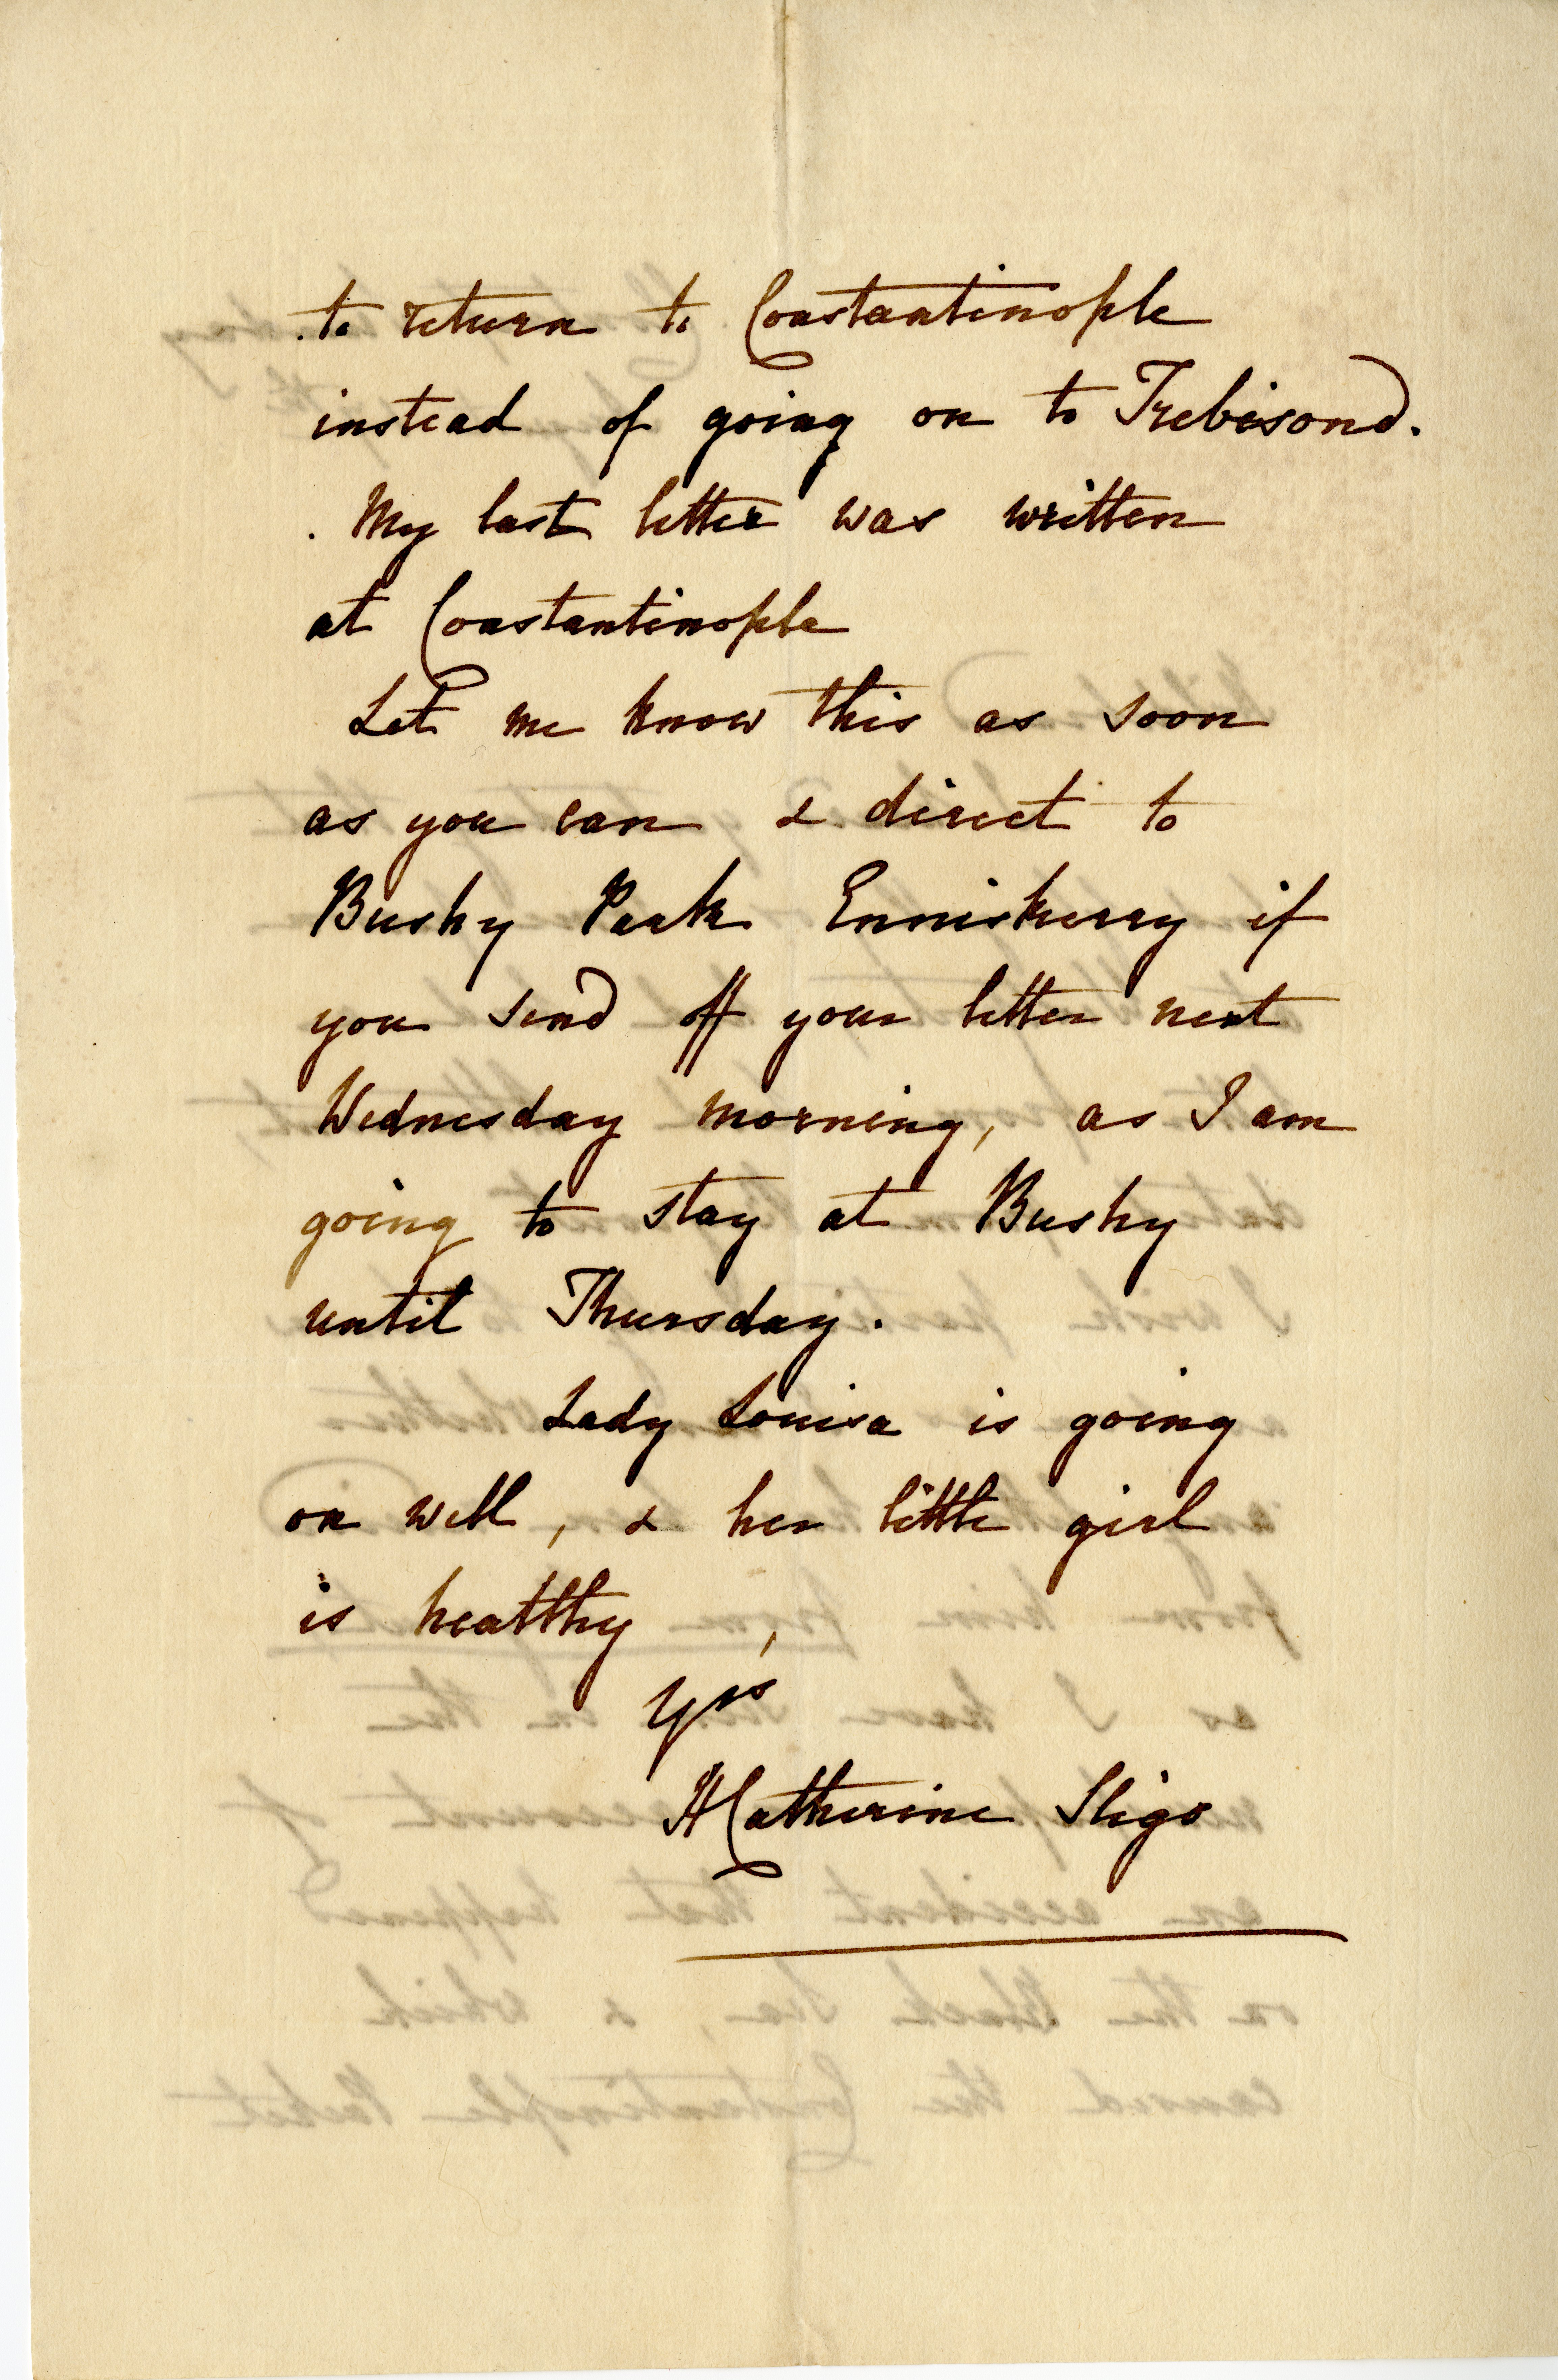 to return to Constantinople
instead of going on to Trebisond.
. My last letter was written
at Constantinople
Let me know this as soon
as you can & direct to
Bushy Park Enniskerry if
you send off your letter next
Wednesday morning, as I am
going to stay at Bushy
until Thursday.
Lady Louisa is going
on well, & her little girl
is healthy,
Yrs
HCatherine Sligo